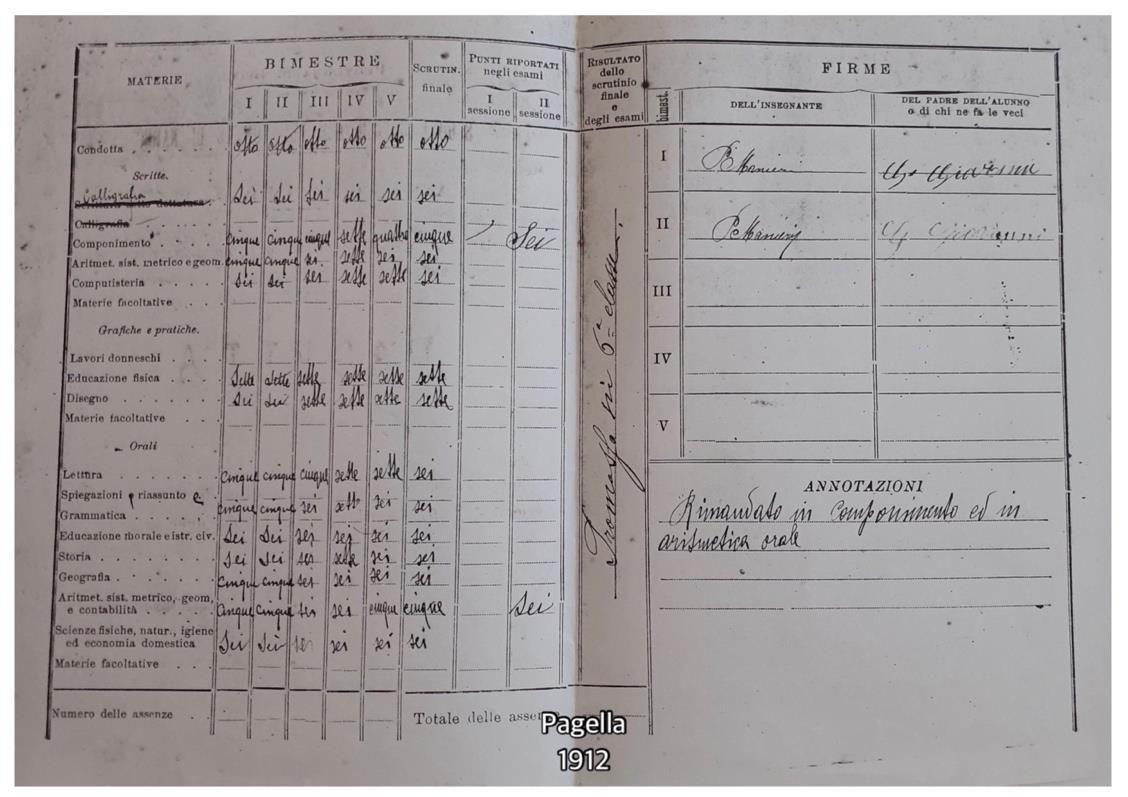 MATERIE
BIMESTRE
I II III IV V
SCRUTIN. finale
PUNTI RIPORTATI negli esami
I sessione II sessione
RISULTATO dello scrutinio finale e degli esami
Condotta otto otto otto otto otto otto
Scritte.
Calligrafia sei sei sei sei sei sei
Calligrafia
Componimento cinque cinque cinque sette quattro cinque / Sei
Aritmet. sist. metrico e geom. cinque cinque sei sette sei sei
Computisteria sei sei sei sette sette sei
Materie facoltative
Grafiche e pratiche.
Lavori donneschi
Educazione fisica sette sette sette sette sette sette
Disegno sei sei sette sette sette sette
Materie facoltative
Orali
Lettura cinque cinque cinque sette sette sei
Spiegazioni riassunto e
Grammatica cinque cinque sei sette sei sei
Educazione morale e istr. civ. sei sei sei sei sei sei
Storia sei sei sei sette sei sei
Geografia cinque cinque sei sei sei sei
Aritmet. sist. metrico, geom,
e contabilità cinque cinque sei sei cinque cinque Sei
Scienze fisiche, natur., igiene
ed economia domestica sei sei sei sei sei sei
Materie facoltative
Numero delle assenze
Totale delle
Promosso in 6ª classe.
FIRME
bimest.
DELL'INSEGNANTE
DEL PADRE DELL'ALUNNO
o di chi ne fa le veci
I
II
III
IV
V
ANNOTAZIONI
Rimandato in componimento ed in
aritmetica orale
Pagella
1912